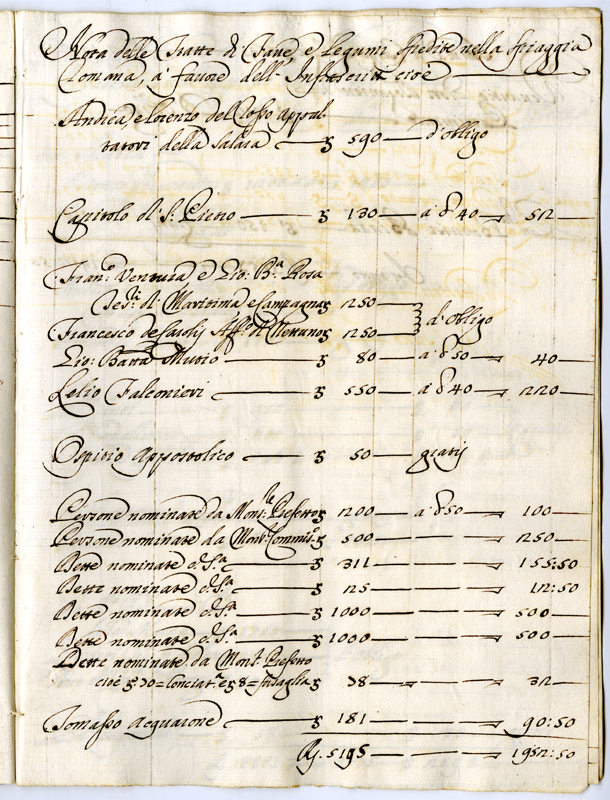 Nota delle Tratte di Fave e Legumi spedite nella spiaggia
Romana, a' favore dell' Infrascritti cioè
Andrea, e Lorenzo del Rosso Appal-
tatori della Salara — 590 — d'obligo
Capitolo di S. Pietro — 130 — a' 40 — 52
Franco Ventura e Gio: Ba Rosa
Tesri di Maritima e Campagna 1250
Francesco de Carolis Affo di Nettuno 1250 — d'obligo
Gio: Batta Mutio — 80 — a' 50 — 40
Lelio Falconieri — 550 — a' 40 — 220
Ospitio Appostolico — 50 — gratis
Persone nominate da Monre Prefetto 1200 — a' 50 — 100
Persone nominate da Monr Commiso 500 — 250
Dette nominate da Sa — 311 — 155:50
Dette nominate da Sa — 125 — 12:50
Dette nominate da Sa — 1000 — 500
Dette nominate da Sa — 1000 — 500
Dette nominate da Monr Prefetto
cioè 30 = 8 = 38 — 32
Tomasso Acquarone — 181 — 90:50
5195 — 1952:50